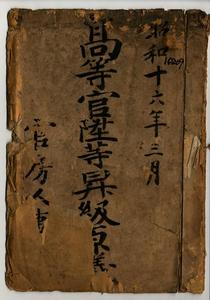 昭和十六年三月
高等官陞等昇級原義
官房人事